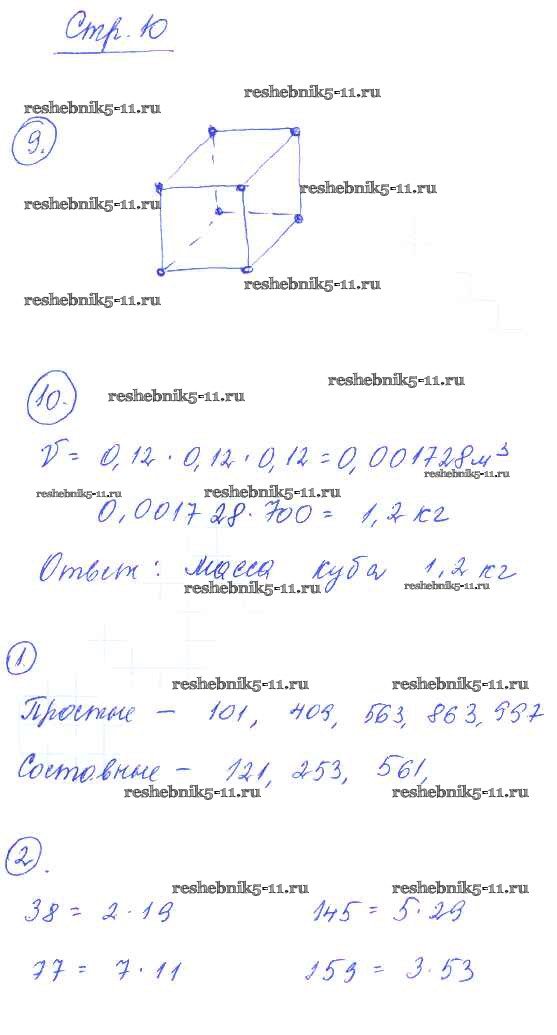 Стр. 10
reshebnik5-11.ru
reshebnik5-11.ru
9.
reshebnik5-11.ru
reshebnik5-11.ru
reshebnik5-11.ru
reshebnik5-11.ru
reshebnik5-11.ru
10.
reshebnik5-11.ru
V = 0,12 · 0,12 · 0,12 = 0,001728 м³
reshebnik5-11.ru
reshebnik5-11.ru
reshebnik5-11.ru
0,001728 · 700 = 1,2 кг
Ответ: масса куба 1,2 кг
reshebnik5-11.ru
reshebnik5-11.ru
1.
reshebnik5-11.ru
reshebnik5-11.ru
Простые – 101, 409, 563, 863, 997
Составные – 121, 253, 561,
reshebnik5-11.ru
reshebnik5-11.ru
2.
reshebnik5-11.ru
reshebnik5-11.ru
38 = 2 · 19 145 = 5 · 29
77 = 7 · 11 159 = 3 · 53